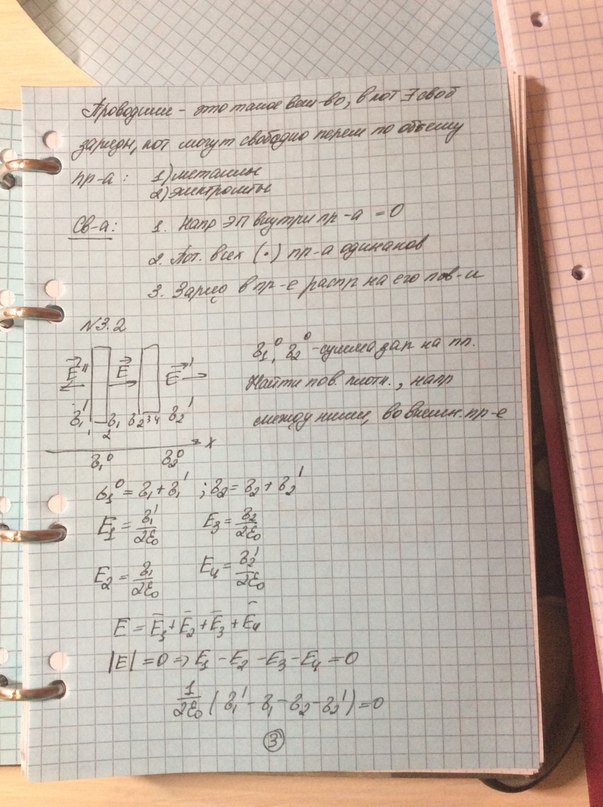 Проводник - это такое вещ-во, в кот ∃ своб
заряды, кот могут свободно перем по объему
пр-а: 1) металлы
2) электролиты
Св-а: 1. Напр ЭП внутри пр-а = 0
2. Пот. всех (·) пр-а одинаков
3. Заряд в пр-е распр на его пов-и
N3.2
σ₁⁰, σ₂⁰ - сумма зар на пл.
E⃗'' E⃗ E⃗'
Найти пов. плотн., напр
между ними, во внешн. пр-е
σ₁' σ₁ σ₂ σ₂'
1 2 3 4
x
σ₁⁰ σ₂⁰
σ₁⁰ = σ₁ + σ₁' ; σ₂ = σ₂ + σ₂'
E₁ = σ₁'/2ε₀ E₃ = σ₂/2ε₀
E₂ = σ₁/2ε₀ E₄ = σ₂'/2ε₀
E = E̅₁ + E̅₂ + E̅₃ + E̅₄
|E| = 0 => E₁ - E₂ - E₃ - E₄ = 0
1/2ε₀ (σ₁' - σ₁ - σ₂ - σ₂') = 0
3